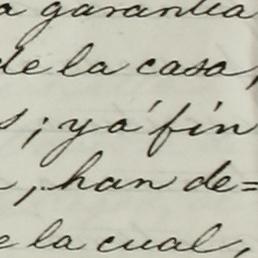 a garantia
de la casa,
s; y á fin
, han de=
e la cual,